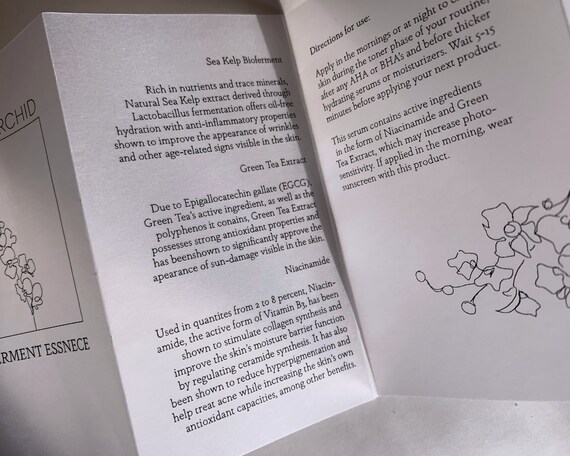 RCHID
ERMENT ESSNECE
Sea Kelp Bioferment
Rich in nutrients and trace minerals,
Natural Sea Kelp extract derived through
Lactobacillus fermentation offers oil-free
hydration with anti-inflammatory properties
shown to improve the appearance of wrinkles
and other age-related signs visible in the skin.
Green Tea Extract
Due to Epigallocatechin gallate (EGCG),
Green Tea's active ingredient, as well as the
polyphenos it conains, Green Tea Extract
possesses strong antioxidant properties and
has beenshown to significantly approve the
apearance of sun-damage visible in the skin.
Niacinamide
Used in quantites from 2 to 8 percent, Niacin-
amide, the active form of Vitamin B3, has been
shown to stimulate collagen synthesis and
improve the skin's moisture barrier function
by regulating ceramide synthesis. It has also
been shown to reduce hyperpigmentation and
help treat acne while increasing the skin's own
antioxidant capacities, among other benefits.
Directions for use:
Apply in the mornings or at night to
skin during the toner phase of your routine,
after any AHA or BHA's and before thicker
hydrating serums or moisturizers. Wait 5-15
minutes before applying your next product.
This serum contains active ingredients
in the form of Niacinamide and Green
Tea Extract, which may increase photo-
sensitivity. If applied in the morning, wear
sunscreen with this product.